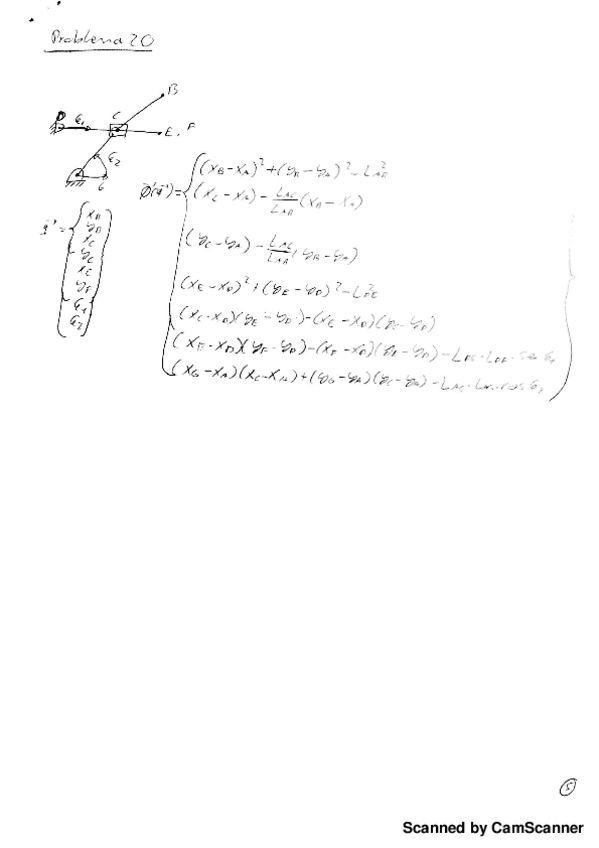 Problema 20
B
D
θ₁
C
E, F
θ₂
G
q = { x_B y_B x_C y_C x_E y_E θ₁ θ₂ }
ϕ(q) = { (x_B - x_A)² + (y_B - y_A)² - L_AB²
(x_C - x_A) - L_AC/L_AB (x_B - x_A)
(y_C - y_A) - L_AC/L_AB (y_B - y_A)
(x_E - x_D)² + (y_E - y_D)² - L_DE²
(x_C - x_D)(y_E - y_D) - (x_E - x_D)(y_C - y_D)
(x_E - x_D)(y_F - y_D) - (x_F - x_D)(y_E - y_D) - L_DE · L_DF · sen θ₁
(x_G - x_A)(x_C - x_A) + (y_G - y_A)(y_C - y_A) - L_AC · L_AG · cos θ₂ }
5
Scanned by CamScanner